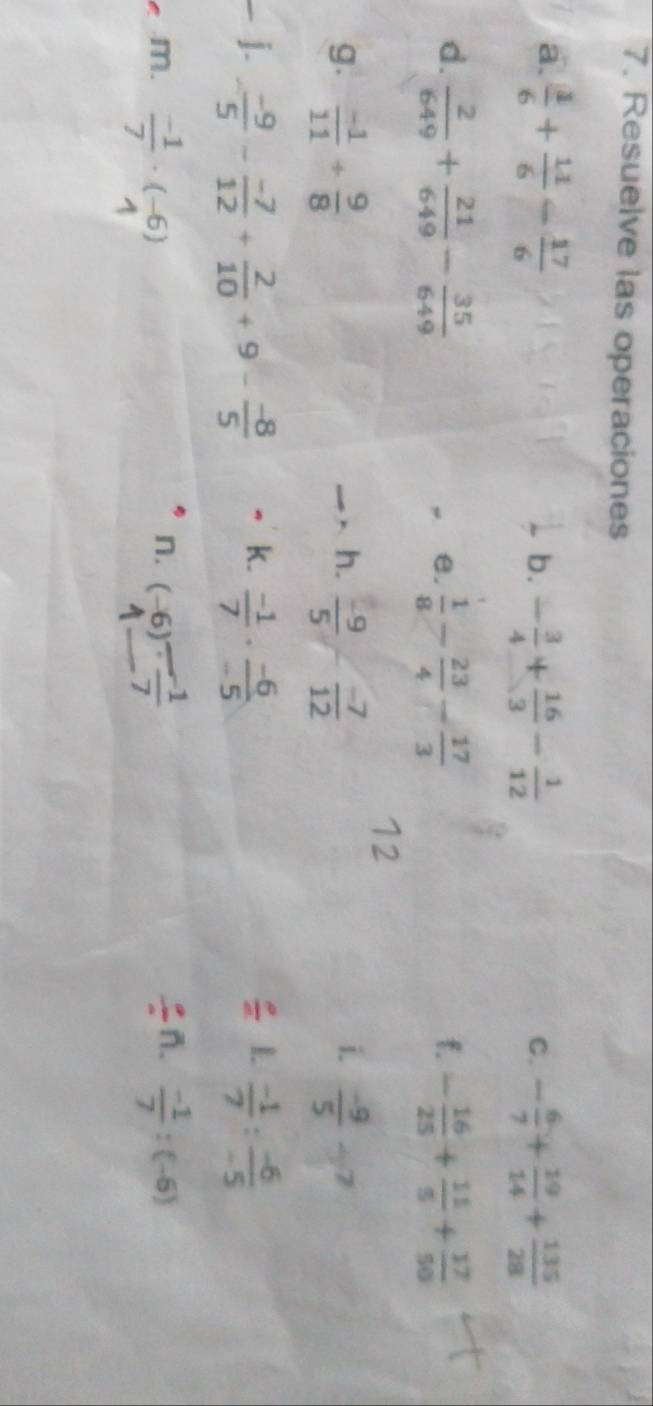 7. Resuelve las operaciones
a. 1/6 + 11/6 - 17/6 b. -3/4 + 16/3 - 1/12 c. -6/7 + 19/14 + 135/28
d. 2/649 + 21/649 - 35/649 e. 1/8 - 23/4 - 17/3 f. -16/25 + 11/5 + 17/50
12
g. -1/11 + 9/8 h. -9/5 - -7/12 i. -9/5 - 7
j. -9/5 - -7/12 + 2/10 + 9 - -8/5 k. -1/7 · -6/-5 l. -1/7 : -6/-5
m. -1/7 · (-6) n. (-6) · -1/7 ñ. -1/7 : (-6)
1 1 7